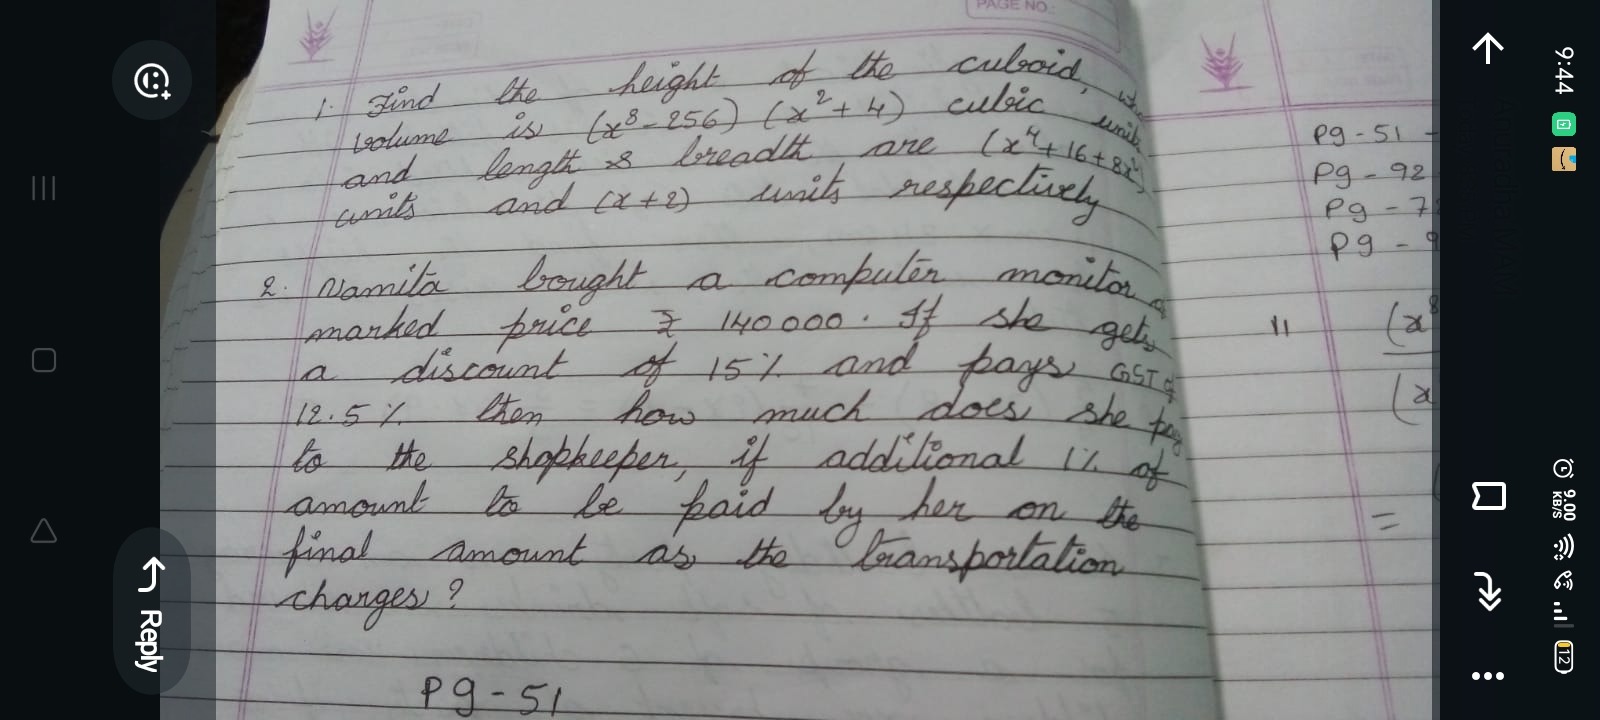 PAGE NO.:
1. Find the height of the cuboid,
volume is (x⁸-256) (x²+4) cubic units
and length & breadth are (x⁴+16+8x²)
units and (x+2) units respectively
2. Namita bought a computer monitor
marked price ₹ 140000. If she gets
a discount of 15% and pays GST of
12.5% then how much does she pay
to the shopkeeper, if additional 1% of
amount to be paid by her on the
final amount as the transportation
charges?
Pg-51
Pg-51 -
Pg-92
Pg-7
Pg-9
11
(x⁸
(x
=
Reply
9:44
9.00
KB/S
12